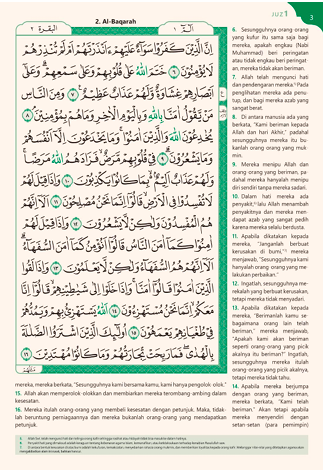 JUZ 1
3
2. Al-Baqarah
البقرة ٢
الٓمٓ ١
اِنَّ الَّذِيْنَ كَفَرُوْا سَوَاۤءٌ عَلَيْهِمْ ءَاَنْذَرْتَهُمْ اَمْ لَمْ تُنْذِرْهُمْ
لَا يُؤْمِنُوْنَ ٦ خَتَمَ اللّٰهُ عَلٰى قُلُوْبِهِمْ وَعَلٰى سَمْعِهِمْ ۗ وَعَلٰٓى
اَبْصَارِهِمْ غِشَاوَةٌ وَّلَهُمْ عَذَابٌ عَظِيْمٌ ٧ وَمِنَ النَّاسِ
مَنْ يَّقُوْلُ اٰمَنَّا بِاللّٰهِ وَبِالْيَوْمِ الْاٰخِرِ وَمَا هُمْ بِمُؤْمِنِيْنَ ٨
يُخٰدِعُوْنَ اللّٰهَ وَالَّذِيْنَ اٰمَنُوْا ۚ وَمَا يَخْدَعُوْنَ اِلَّآ اَنْفُسَهُمْ
وَمَا يَشْعُرُوْنَ ٩ فِيْ قُلُوْبِهِمْ مَّرَضٌ فَزَادَهُمُ اللّٰهُ مَرَضًا ۚ
وَلَهُمْ عَذَابٌ اَلِيْمٌ ۢ بِمَا كَانُوْا يَكْذِبُوْنَ ١٠ وَاِذَا قِيْلَ لَهُمْ
لَا تُفْسِدُوْا فِى الْاَرْضِ قَالُوْٓا اِنَّمَا نَحْنُ مُصْلِحُوْنَ ١١ اَلَآ اِنَّهُمْ
هُمُ الْمُفْسِدُوْنَ وَلٰكِنْ لَّا يَشْعُرُوْنَ ١٢ وَاِذَا قِيْلَ لَهُمْ
اٰمِنُوْا كَمَآ اٰمَنَ النَّاسُ قَالُوْٓا اَنُؤْمِنُ كَمَآ اٰمَنَ السُّفَهَاۤءُ ۗ
اَلَآ اِنَّهُمْ هُمُ السُّفَهَاۤءُ وَلٰكِنْ لَّا يَعْلَمُوْنَ ١٣ وَاِذَا لَقُوا
الَّذِيْنَ اٰمَنُوْا قَالُوْٓا اٰمَنَّا ۚ وَاِذَا خَلَوْا اِلٰى شَيٰطِيْنِهِمْ قَالُوْٓا اِنَّا
مَعَكُمْ ۙ اِنَّمَا نَحْنُ مُسْتَهْزِءُوْنَ ١٤ اَللّٰهُ يَسْتَهْزِئُ بِهِمْ وَيَمُدُّهُمْ
فِيْ طُغْيَانِهِمْ يَعْمَهُوْنَ ١٥ اُولٰۤىِٕكَ الَّذِيْنَ اشْتَرَوُا الضَّلٰلَةَ
بِالْهُدٰى ۖ فَمَا رَبِحَتْ تِّجَارَتُهُمْ وَمَا كَانُوْا مُهْتَدِيْنَ ١٦
6. Sesungguhnya orang-orang
yang kufur itu sama saja bagi
mereka, apakah engkau (Nabi
Muhammad) beri peringatan
atau tidak engkau beri peringat-
an, mereka tidak akan beriman.
7. Allah telah mengunci hati
dan pendengaran mereka. Pada
penglihatan mereka ada penu-
tup, dan bagi mereka azab yang
sangat berat.
8. Di antara manusia ada yang
berkata, "Kami beriman kepada
Allah dan hari Akhir," padahal
sesungguhnya mereka itu bu-
kanlah orang-orang yang muk-
min.
9. Mereka menipu Allah dan
orang-orang yang beriman, pa-
dahal mereka hanyalah menipu
diri sendiri tanpa mereka sadari.
10. Dalam hati mereka ada
penyakit, lalu Allah menambah
penyakitnya dan mereka men-
dapat azab yang sangat pedih
karena mereka selalu berdusta.
11. Apabila dikatakan kepada
mereka, "Janganlah berbuat
kerusakan di bumi," mereka
menjawab, "Sesungguhnya kami
hanyalah orang-orang yang me-
lakukan perbaikan."
12. Ingatlah, sesungguhnya me-
rekalah yang berbuat kerusakan,
tetapi mereka tidak menyadari.
13. Apabila dikatakan kepada
mereka, "Berimanlah kamu se-
bagaimana orang lain telah
beriman," mereka menjawab,
"Apakah kami akan beriman
seperti orang-orang yang picik
akalnya itu beriman?" Ingatlah,
sesungguhnya mereka itulah
orang-orang yang picik akalnya,
tetapi mereka tidak tahu.
14. Apabila mereka berjumpa
dengan orang yang beriman,
mereka berkata, "Kami telah
beriman." Akan tetapi apabila
mereka menyendiri dengan
setan-setan (para pemimpin)
mereka, mereka berkata, "Sesungguhnya kami bersama kamu, kami hanya pengolok-olok."
15. Allah akan memperolok-olokkan dan membiarkan mereka terombang-ambing dalam
kesesatan.
16. Mereka itulah orang-orang yang membeli kesesatan dengan petunjuk. Maka, tidak-
lah beruntung perniagaannya dan mereka bukanlah orang-orang yang mendapatkan
petunjuk.